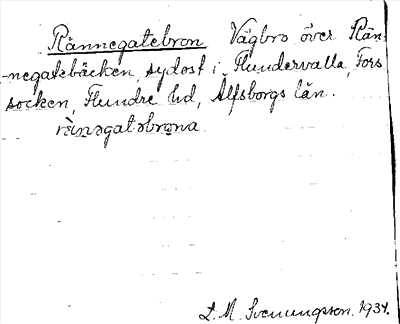 Rännegatebron Vägbro över Rän-
negatebäcken, sydost i Flundervalla, Fors
socken, Flundre hd, Älfsborgs län.
rànəgatəbrona
L. M. Svenungsson. 1934.